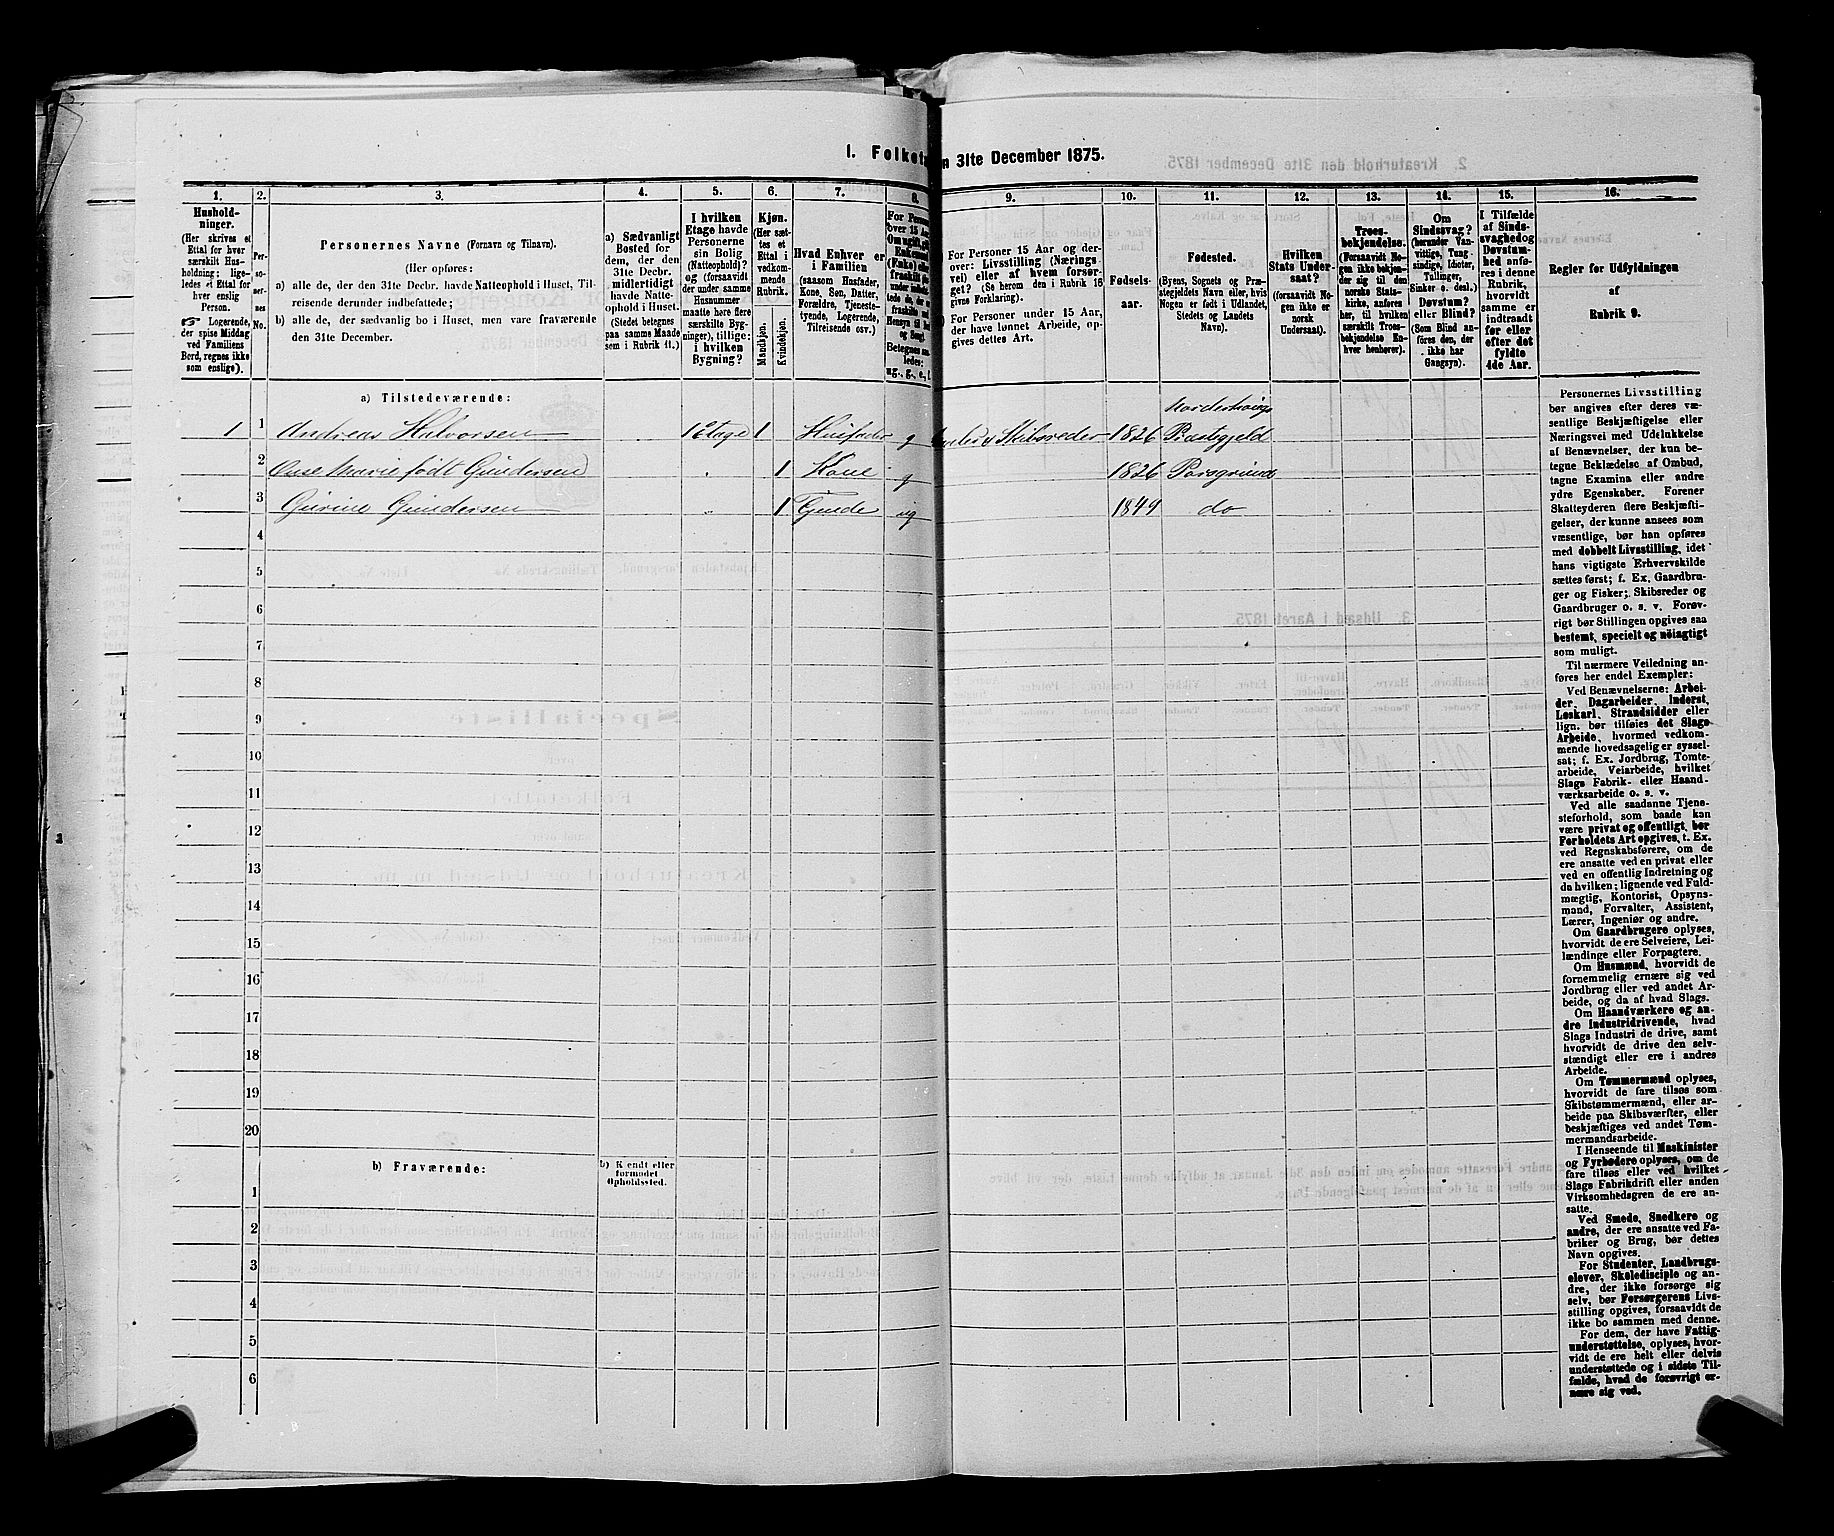 1. Folket
n 31te December 1875.
1.
2.
3.
4.
5.
6.
7.
8.
9.
10.
11.
12.
13.
14.
15.
16.
Hushold-
ninger.
(Her skrives et
Ettal for hver
særskilt Hus-
holdning; lige-
ledes et Ettal for
hver enslig
Person.
☞ Logerende,
der spise Middag
ved Familiens
Bord, regnes ikke
som enslige).
Per-
so-
ner-
nes
No.
Personernes Navne (Fornavn og Tilnavn).
(Her opføres:
a) alle de, der den 31te Decbr. havde Natteophold i Huset, Til-
reisende derunder indbefattede;
b) alle de, der sædvanlig bo i Huset, men vare fraværende
den 31te December.
a) Sædvanligt
Bosted for
dem, der den
31te Decbr.
midlertidigt
havde Natte-
ophold i Huset.
(Stedet betegnes
paa samme Maade
som i Rubrik 11.)
I hvilken
Etage havde
Personerne
sin Bolig
(Natteophold)?
(forsaavidt
der under samme
Husnummer
maatte høre flere
særskilte Byg-
ninger), tillige:
i hvilken
Bygning?
Kjøn.
(Her sæt-
tes et
Ettal i
vedkom-
mende
Rubrik.
Mandkjøn.
Kvindekjøn.
Hvad Enhver er
i Familien
(saasom Husfader,
Kone, Søn, Datter,
Forældre, Tjeneste-
tyende, Logerende,
Tilreisende osv.)
For Personer 15 Aar og der-
over: Livsstilling (Nærings-
vei) eller af hvem forsør-
get? (Se herom den i Rubrik 16
givne Forklaring).
For Personer under 15 Aar,
der have lønnet Arbeide, op-
gives dettes Art.
Fødsels-
aar.
Fødested.
(Byens, Sognets og Præ-
stegjeldets Navn eller, hvis
Nogen er født i Udlandet,
Stedets og Landets
Navn).
Hvilken
Stats Under-
saat?
(forsaavidt No-
gen ikke er
norsk
Undersaat).
Troes-
bekjendelse.
(Forsaavidt No-
gen ikke bekjen-
der sig til den
norske Stats-
kirke, anføres
her, til hvilken
særskilt Troes-
bekjendelse En-
hver henhører).
Om
Sindssvag?
(herunder Van-
vittige, Tung-
sindige, Idioter,
Tullinger,
Sinker o. desl.)
Døvstum?
eller Blind?
(Som Blind an-
føres den, der
ikke har
Gangsyn).
I Tilfælde
af Sinds-
svaghed og
Døvstum-
hed anfø-
res i denne
Rubrik,
hvorvidt
samme er
indtraadt
før eller
efter det
fyldte
4de Aar.
Regler for Udfyldningen
af
Rubrik 9.
a) Tilstedeværende:
1 1 Andreas Halvorsen 1 Etage 1 Husfader g Skibsreder 1826 Præstegjeld
2 Anne Marie født Gundersen 1 Kone g 1826 Porsgrund
3 Gurine Gundersen 1 ug 1849 do
4
5
6
7
8
9
10
11
12
13
14
15
16
17
18
19
20
b) Fraværende:
b) Kjendt eller
formodet
Opholdssted.
1
2
3
4
5
6
Personernes Livsstilling
bør angives efter deres væ-
sentlige Beskjæftigelse eller
Næringsvei med Udelukkelse
af Benævnelser, der kun be-
tegne Beklædelse af Ombud,
tagne Examina eller andre
ydre Egenskaber. Forener
Skatteyderen flere Beskjæfti-
gelser, der kunne ansees som
væsentlige, bør han opføres
med dobbelt Livsstilling, idet
hans vigtigste Erhvervskilde
sættes først; f. Ex. Gaardbru-
ger og Fisker; Skibsreder og
Gaardbruger o. s. v. Forøv-
rigt bør Stillingen opgives saa
bestemt, specielt og nøiagtigt
som muligt.
Til nærmere Veiledning an-
føres her endel Exempler:
Ved Benævnelserne: Arbei-
der, Dagarbeider, Inderst,
Løskarl, Strandsidder eller
lign. bør tilføies det Slags
Arbeide, hvormed vedkom-
mende hovedsagelig er syssel-
sat; f. Ex. Jordbrug, Tomte-
arbeide, Veiarbeide, hvilket
Slags Fabrik- eller Haand-
værksarbeide o. s. v.
Ved alle saadanne Tjene-
steforhold, som baade kan
være privat og offentligt, bør
Forholdets Art opgives, t. Ex.
ved Regnskabsførere, om de
ere ansatte ved en privat eller
ved en offentlig Indretning og
da hvilken; lignende ved Fuld-
mægtig, Kontorist, Opsyns-
mand, Forvalter, Assistent,
Lærer, Ingeniør og andre.
Om Gaardbrugere oplyses,
hvorvidt de ere Selveiere, Lei-
lændinge eller Forpagtere.
Om Husmænd, hvorvidt de
fornemmelig ernære sig ved
Jordbrug eller ved andet Ar-
beide, og da af hvad Slags.
Om Haandværkere og an-
dre Industridrivende, hvad
Slags Industri de drive, samt
hvorvidt de drive den selv-
stændigt eller ere i andres
Arbeide.
Om Tømmermænd oplyses,
hvorvidt de fare tilsøs som
Skibstømmermænd, eller ar-
beide paa Skibsværfter, eller
beskjæftiges ved andet Tøm-
mermandsarbeide.
I Henseende til Maskinister
og Fyrbødere oplyses, om de
fare tilsøs eller ved hvilket
Slags Fabrikdrift eller anden
Virksomhedsgren de ere an-
satte.
Ved Smede, Snedkere og
andre, der ere ansatte ved Fa-
briker og Brug, bør dettes
Navn opgives.
For Studenter, Landbrugs-
elever, Skoledisciple og an-
dre, der ikke forsørge sig
selv, bør Forsørgerens Livs-
stilling opgives, forsaavidt de
ikke bo sammen med denne.
For dem, der have Fattig-
understøttelse, oplyses, hvor-
vidt de ere helt eller delvis
understøttede og i sidste Til-
fælde, hvad de forøvrigt er-
nære sig ved.